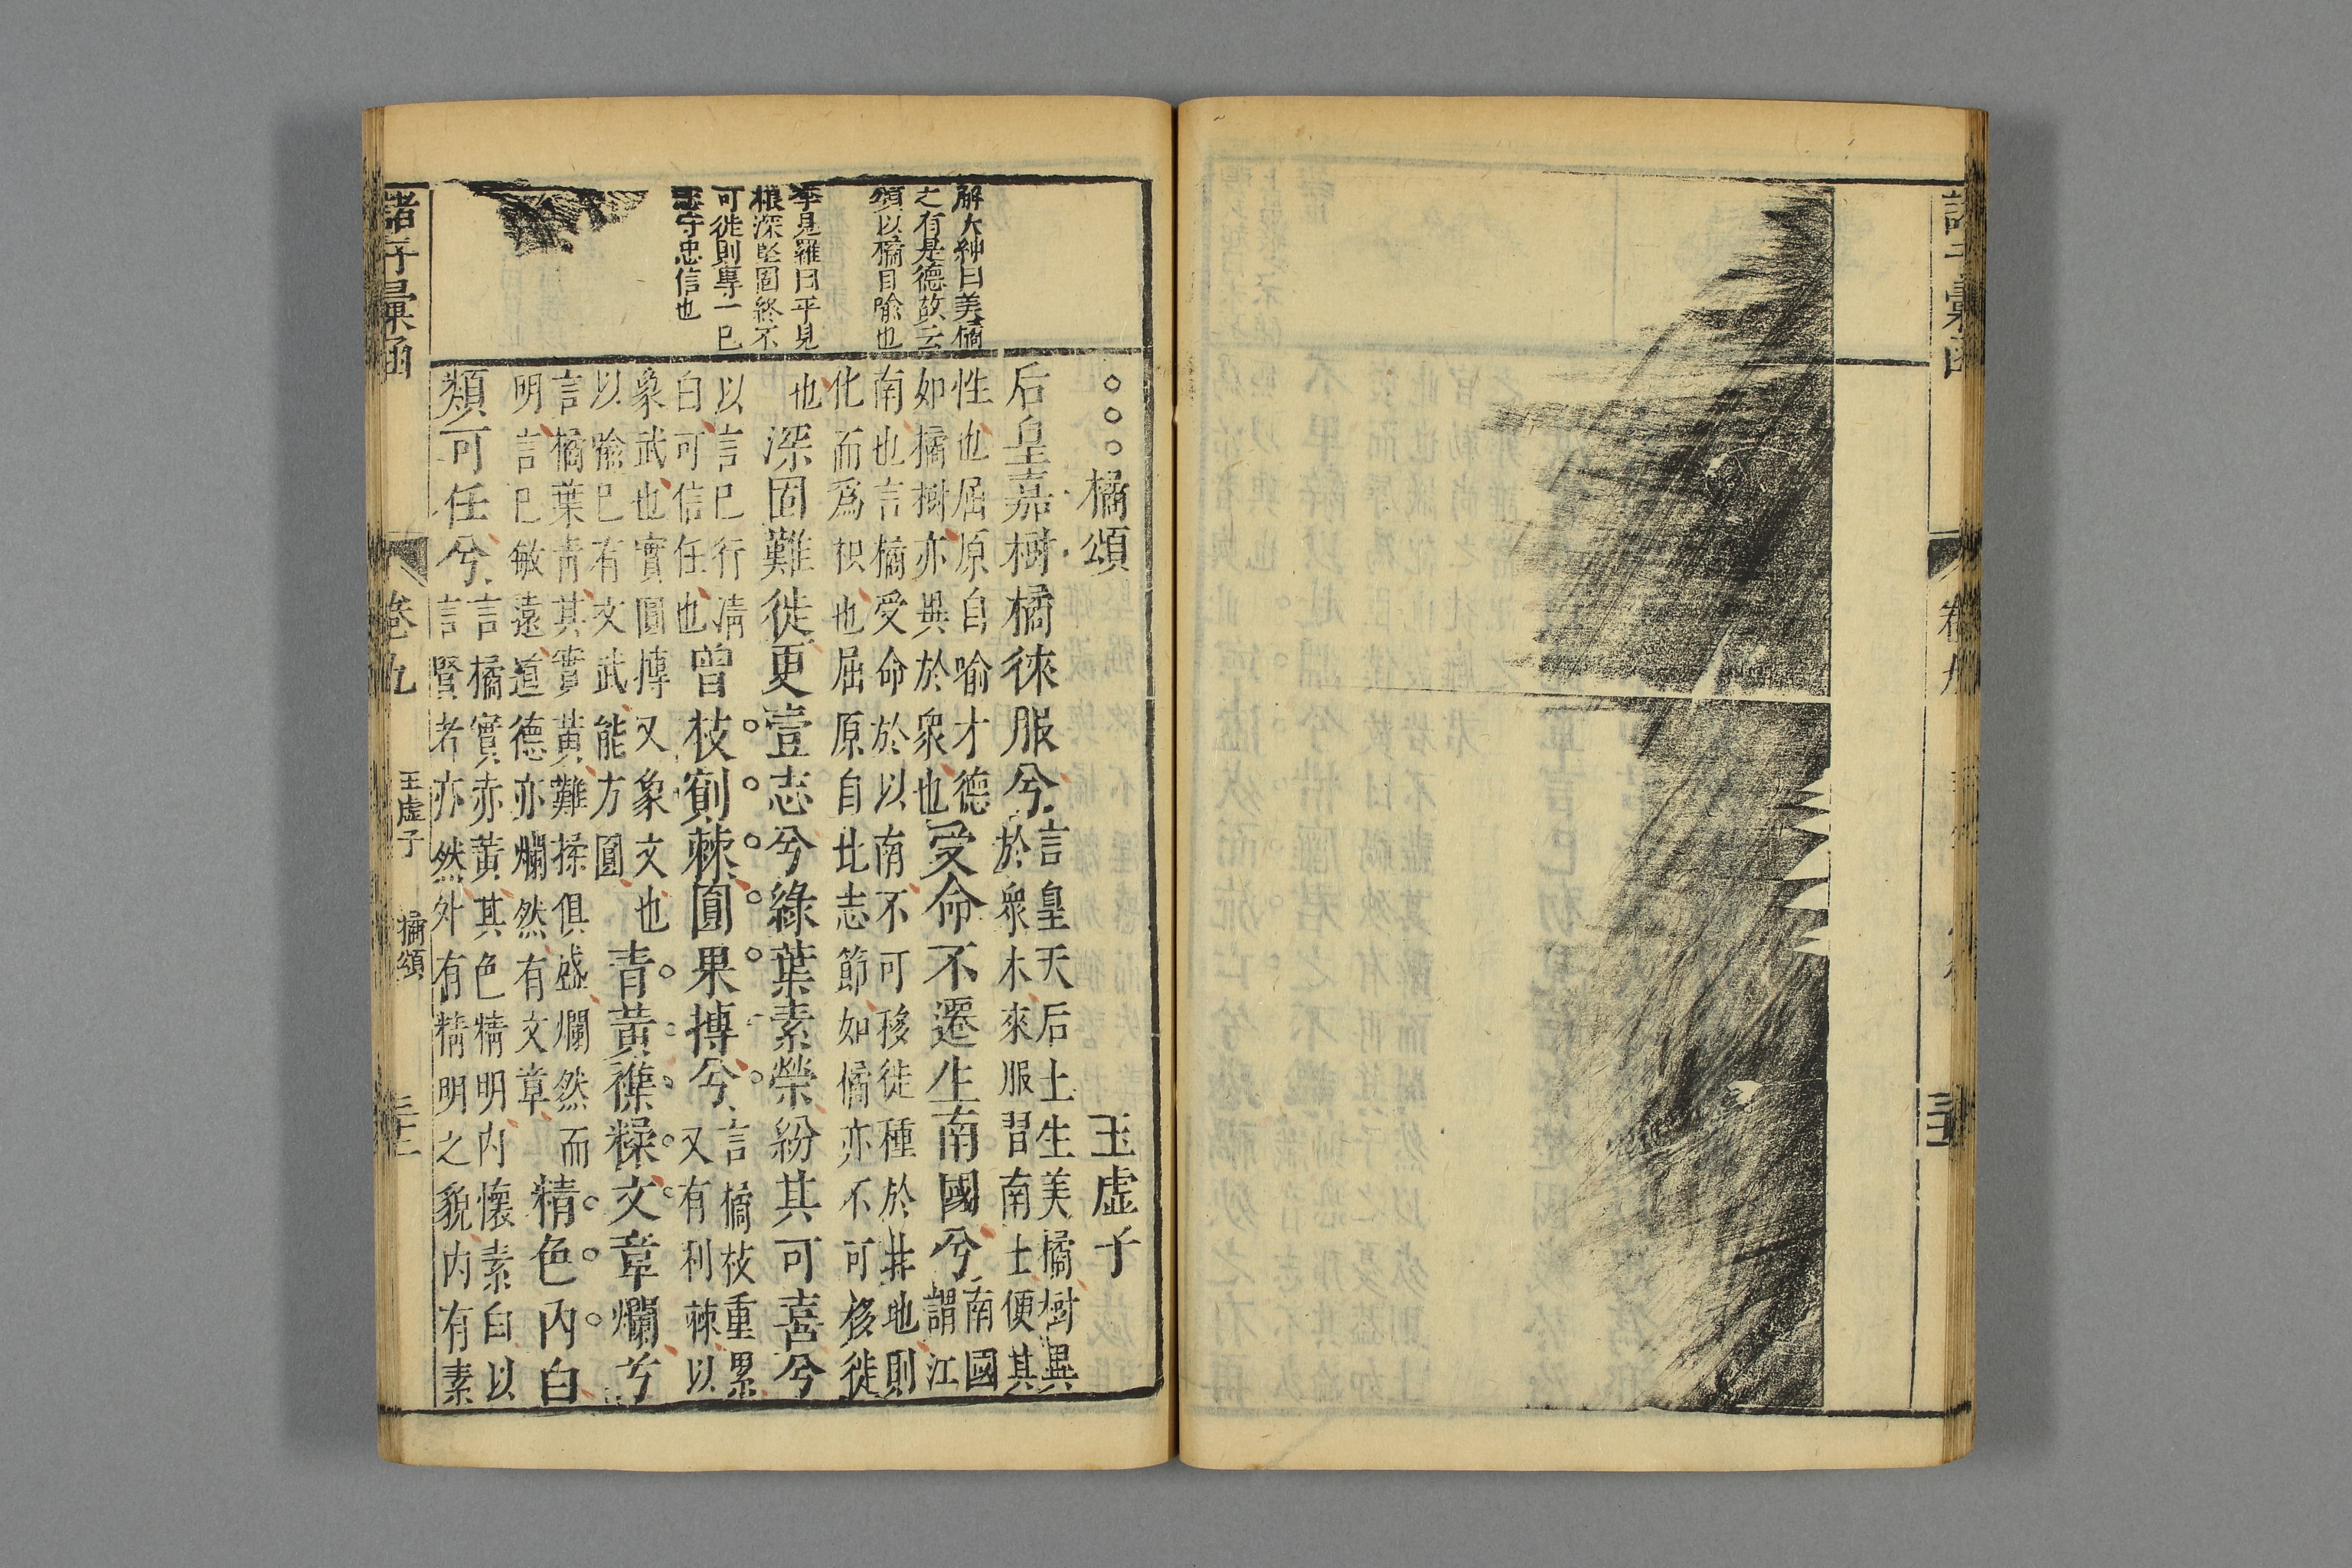 諸子彙函
卷九
橘頌　玉虛子
后皇嘉樹橘徠服兮
言皇天后土生美橘樹異
於衆木來服習南土便其
性也屈原自喻才德
如橘樹亦異於衆也
受命不遷生南國兮
南國
謂江
南也言橘受命於以南不可移徙種於井地則
化而爲枳也屈原自比志節如橘亦不可移徙
也
深固難徙更壹志兮綠葉素榮紛其可喜兮
以言已行清
白可信任也
曾枝剡棘圓果摶兮
言橘枝重累
又有利棘以
象武也實圓摶又象文也
以喻已有文武能方圓
青黃襍糅文章爛兮
言橘葉青其實黃難揉俱盛爛然而
明言已敏遠道德亦爛然有文章
精色內白
類可任兮
言橘實赤黃其色精明內懷素白以
言賢者亦然外有精明之貌內有素
解大紳曰美橘
之有是德故云
頌以橘自喻也
李見羅曰平見
根深堅固終不
可徙則專一已
守忠信也
諸子彙函
卷九
玉虛子
橘頌
三十二